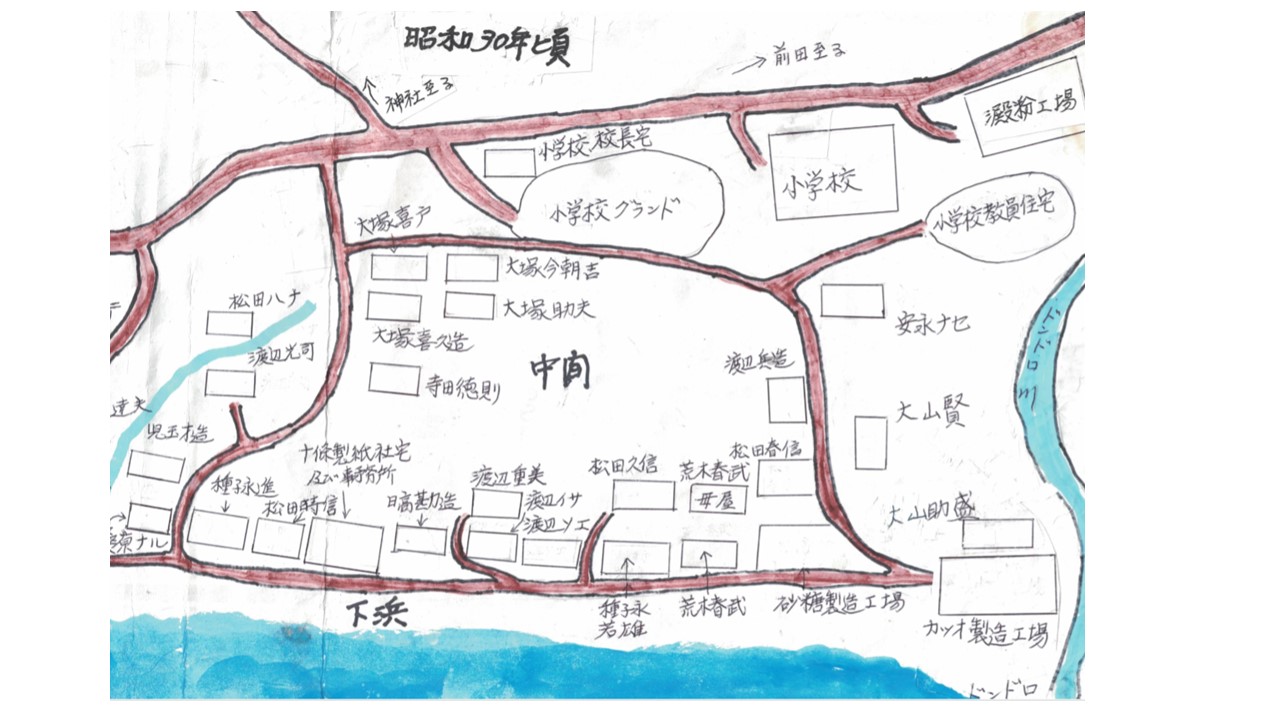 昭和30年頃
前田至る
神社至る
澱粉工場
小学校、校長宅
小学校
小学校グランド
小学校教員住宅
大塚喜戸
大塚今朝吉
松田ハナ
大塚助夫
大塚喜久造
安永ナセ
ドンドロ川
渡辺光司
中間
渡辺兵造
寺田徳則
達夫
大山賢
児玉才造
十條製紙社宅
及び事務所
松田春信
種子永進
渡辺重美
松田久信
荒木春武
母屋
松田時信
日高勘造
渡辺イサ
渡辺ツエ
大山助盛
ナル
下浜
種子永
若雄
荒木春武
砂糖製造工場
カツオ製造工場
ドンドロ